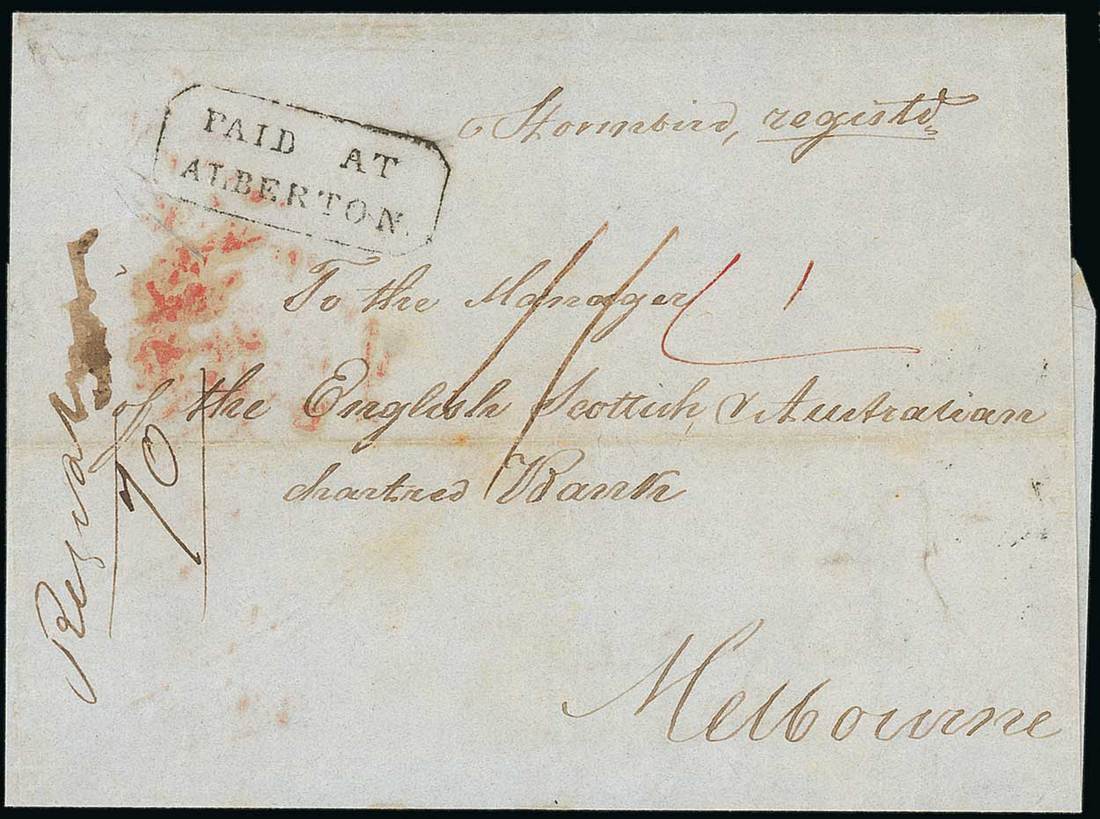 PAID AT
ALBERTON.
Stormbird, registd
To the Manager
of the English Scottish, & Australian
chartred Bank
Melbourne
70